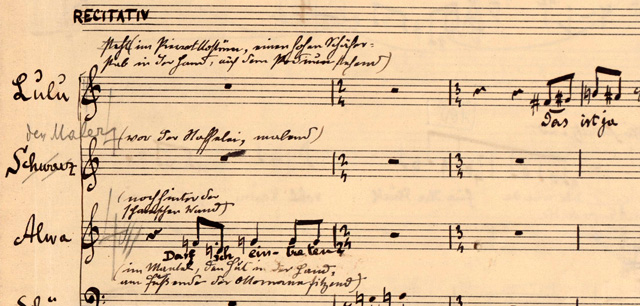 RECITATIV
steht im Pierrotkostüm, einen hohen Schäfer-
stab in der Hand, auf dem Podium stehend)
Lulu
2 4
3 4
das ist ja
der Maler
(vor der Staffelei, malend)
Schwarz
2 4
3 4
(noch hinter der
spanischen Wand)
Alwa
2 4
3 4
Darf ich ein-treten
(im Mantel, den Hut in der Hand,
am Fußende der Ottomane sitzend)